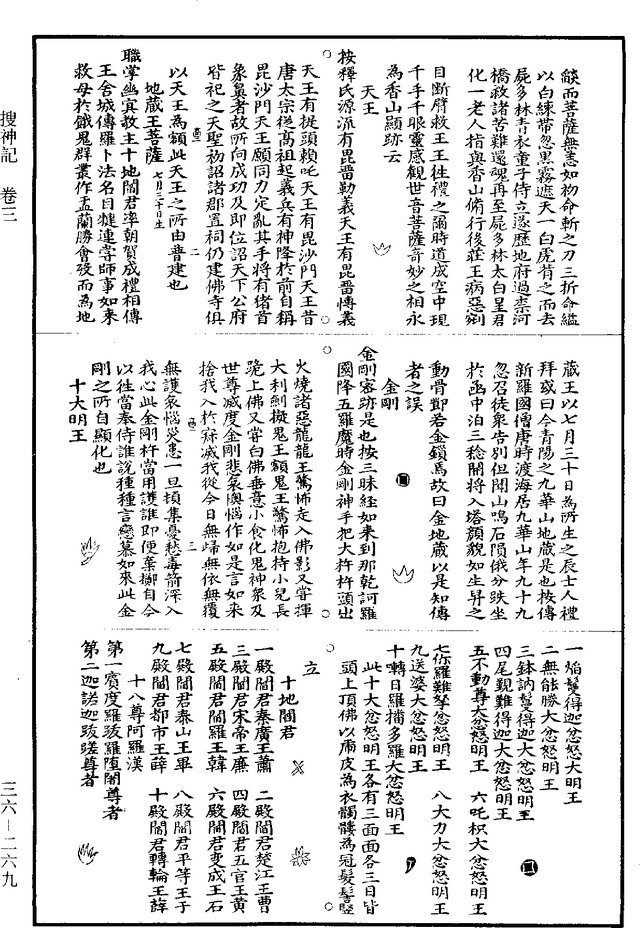 燄而菩薩無恙如初命斬之刀三折命縊
以白練帶忽黑霧遮天一白虎背之而去
屍多林青衣童子侍立遂歷地府過柰河
橋救諸苦難還魂再至屍多林太白星君
化一老人指與香山脩行後莊王病惡剜
目斷臂救王王往禮之爾時道成空中現
千手千眼靈感觀世音菩薩奇妙之相永
為香山顯跡云
天王
按釋氏源流有毘畨勒義天王有毘畨愽義
天王有提頭賴吒天王有毘沙門天王昔
唐太宗從高祖起義兵有神降於前自稱
毘沙門天王願同力定亂其手將有猪首
象鼻者故所向成功及即位詔天下公府
皆祀之天聖初詔諸郡置祠仍建佛寺俱
以天王為額此天王之所由普建也
地藏王菩薩 七月三十日生
職掌幽冥教主十地閻君率朝賀成禮相傳
王舍城傳羅卜法名目犍連嘗師事如來
救母於餓鬼群叢作盂蘭勝會歿而為地
藏王以七月三十日為所生之辰士人禮
拜或曰今青陽之九華山地藏是也按傳
新羅國僧唐時渡海居九華山年九十九
忽召徒衆告別但聞山鳴石隕俄分趺坐
於函中泊三稔開將入塔顏貌如生舁之
動骨節若金鎖焉故曰金地藏以是知傳
者之誤
金剛
金剛密跡是也按三昧経如來到那乾訶羅
國降五羅魔時金剛神手把大杵杵頭出
火燒諸惡龍龍王驚怖走入佛影又嘗揮
大利劍擬鬼王額鬼王驚怖抱持小兒長
跪上佛又嘗白佛垂意小食化鬼神衆及
世尊威度金剛悲哀懊惱作如是言如來
捨我入於寂滅我從今日無歸無依無覆
無護衰惱災患一旦頓集憂愁毒箭深入
我心此金剛杵當用護誰即便棄擲自今
以徃當奉侍誰說種種言戀慕如來此金
剛之所自顯化也
十大明王
一焰鬘得迦忿怒大明王
二無能勝大忿怒明王
三鉢訥鬘得迦大忿怒明王
四尾覲難得迦大忿怒明王
五不動尊大忿怒明王 六吒枳大忿怒明王
七你羅難拏忿怒明王 八大力大忿怒明王
九送婆大忿怒明王
十嚩日羅播多羅大忿怒明王
此十大忿怒明王各有三面面各三目皆
頭上頂佛以虎皮為衣髑髏為冠髮髻豎
立
十地閻君
一殿閻君秦廣王蕭 二殿閻君楚江王曹
三殿閻君宋帝王廉 四殿閻君五官王黃
五殿閻君閻羅王韓 六殿閻君変成王石
七殿閻君泰山王畢 八殿閻君平等王于
九殿閻君都市王薛 十殿閻君轉輪王薛
十八尊阿羅漢
第一賓度羅䟦羅墮闍尊者
第二迦諾迦䟦蹉尊者
搜神記 卷三
三六—二六九
二
三